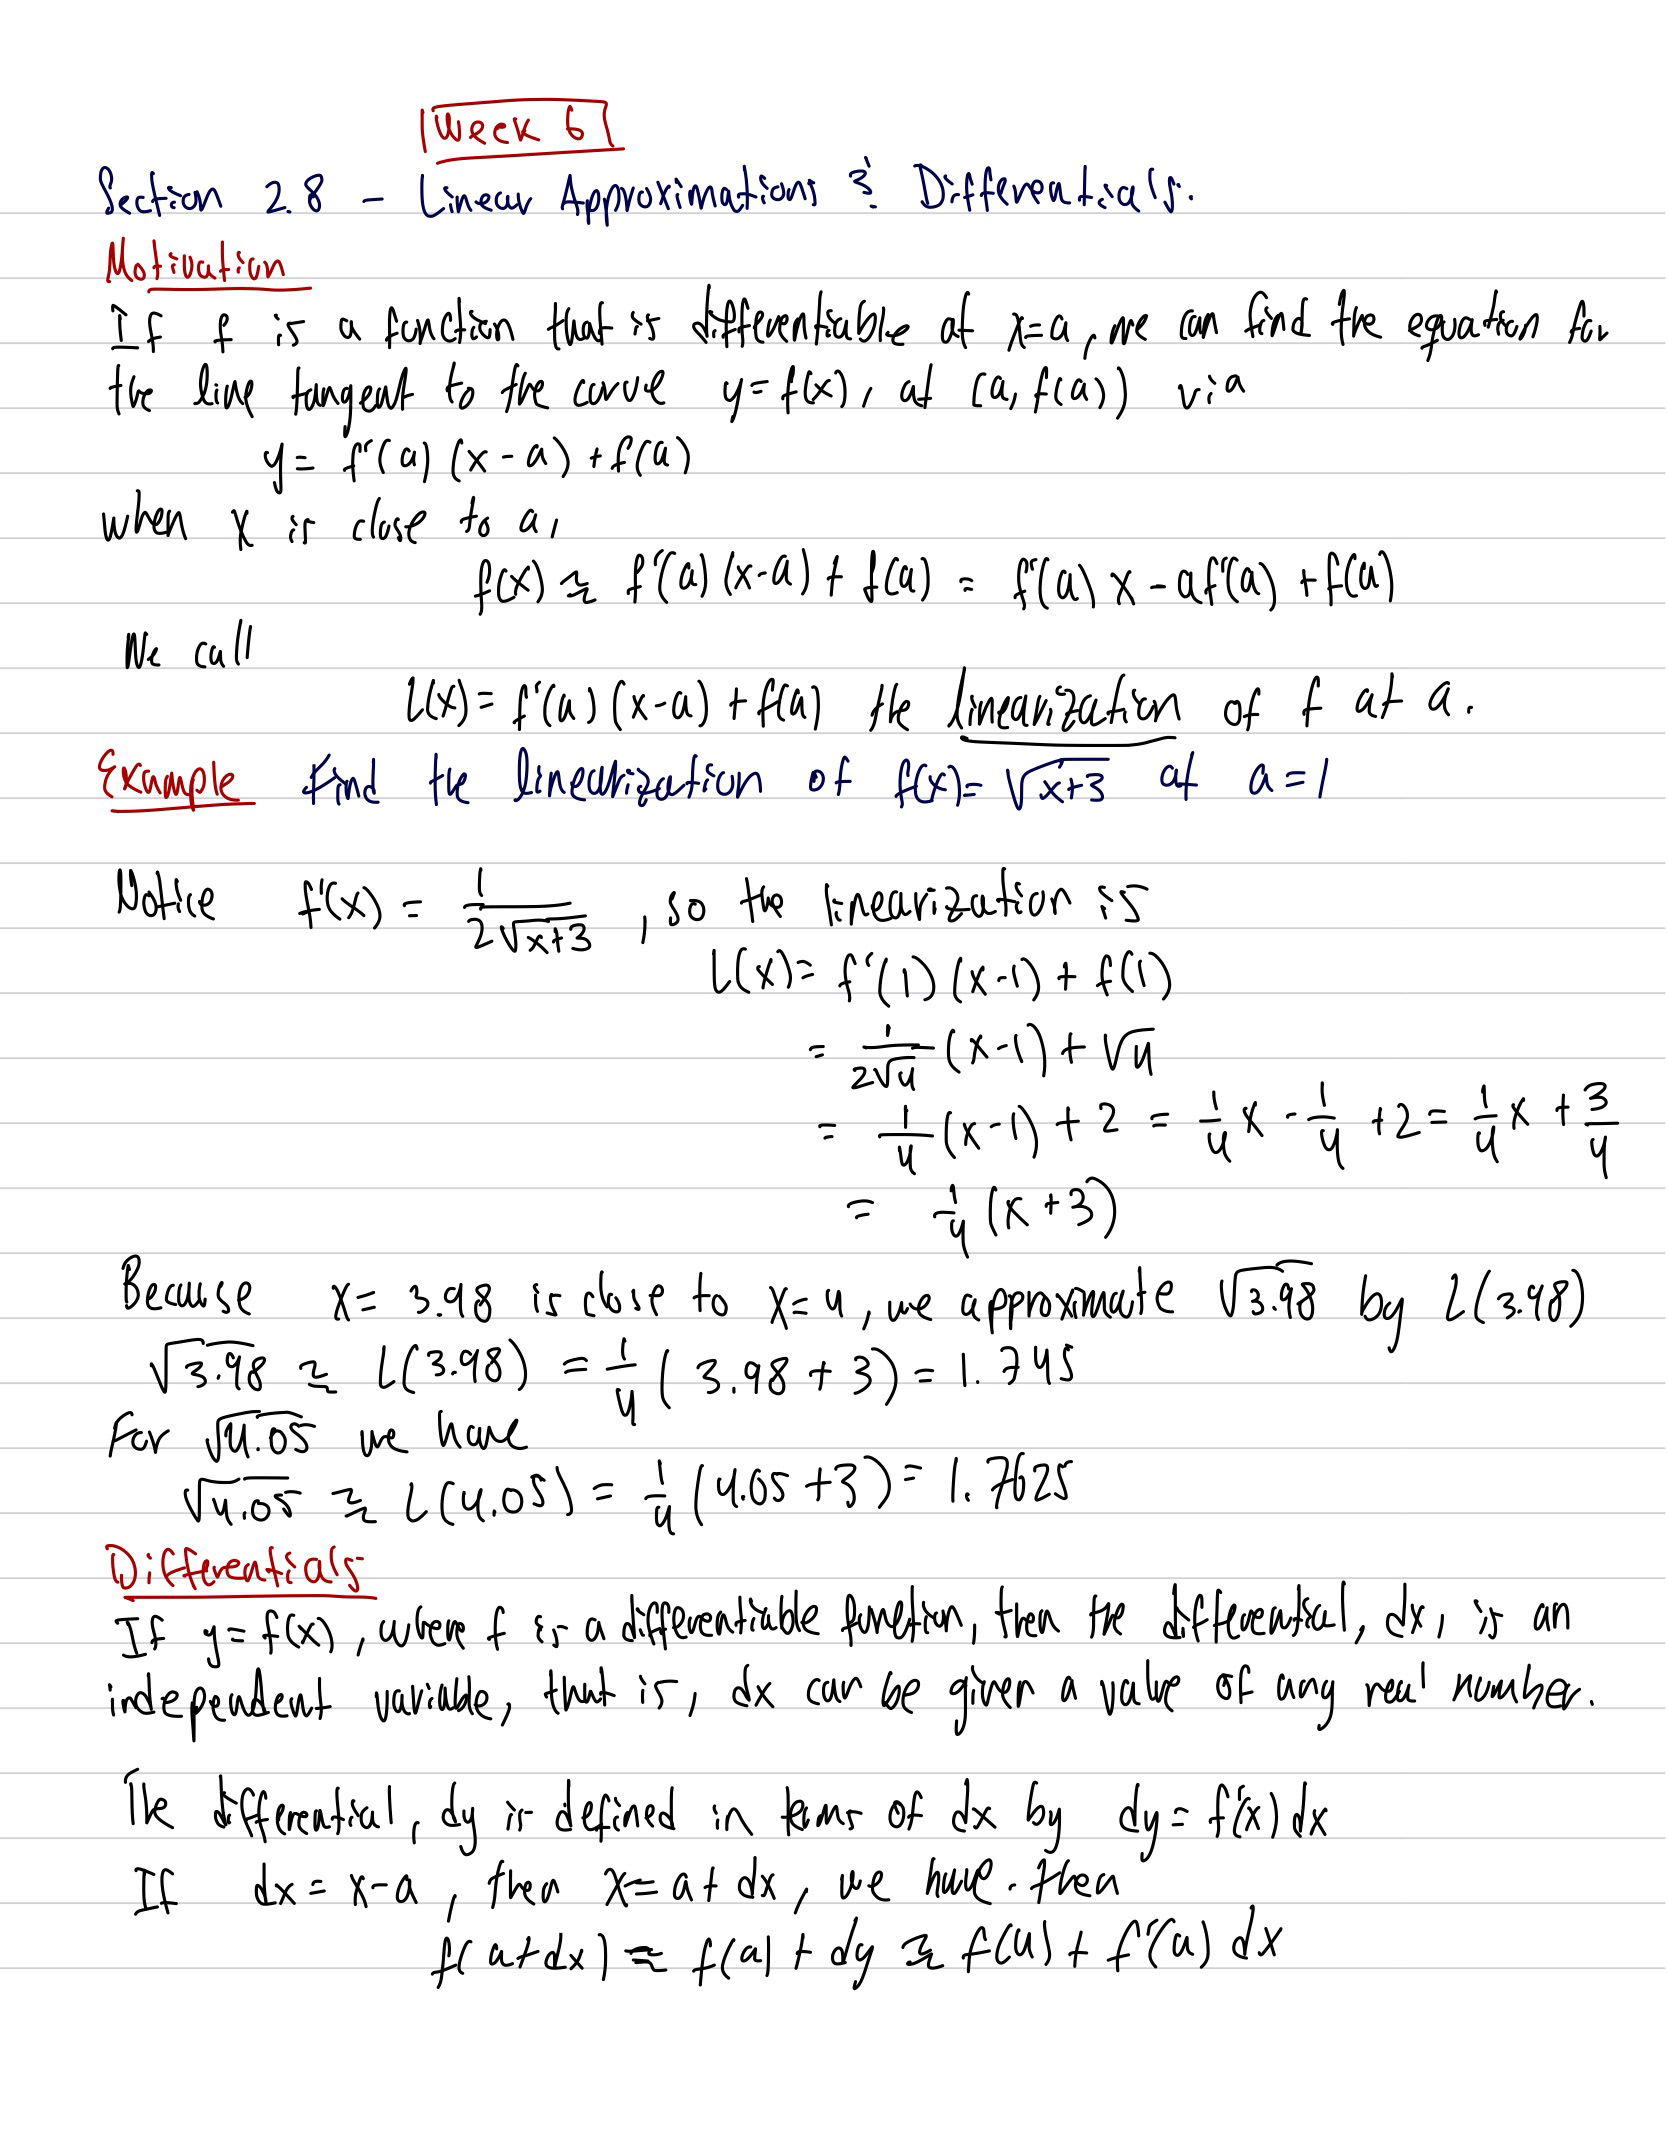 Week 6
Section 2.8 - Linear Approximations & Differentials.
Motivation
If f is a function that is differentiable at x=a, we can find the equation for
the line tangent to the curve y=f(x), at (a, f(a)) via
y= f'(a) (x-a) + f(a)
when x is close to a,
f(x) ≈ f'(a) (x-a) + f(a) = f'(a) x - af'(a) + f(a)
We call
L(x) = f'(a) (x-a) + f(a) the linearization of f at a.
Example Find the linearization of f(x)= √(x+3) at a=1
Notice f'(x) = 1/(2√(x+3)), so the linearization is
L(x)= f'(1) (x-1) + f(1)
= 1/(2√4) (x-1) + √4
= 1/4 (x-1) + 2 = 1/4 x - 1/4 + 2 = 1/4 x + 3/4
= 1/4 (x+3)
Because x= 3.98 is close to x=4, we approximate √3.98 by L(3.98)
√3.98 ≈ L(3.98) = 1/4 (3.98 + 3) = 1.745
For √4.05 we have
√4.05 ≈ L(4.05) = 1/4 (4.05 + 3) = 1.7625
Differentials
If y= f(x), where f is a differentiable function, then the differential, dx, is an
independent variable, that is, dx can be given a value of any real number.
The differential, dy is defined in terms of dx by dy= f'(x) dx
If dx = x-a, then x= a+ dx, we have. then
f(a+dx) ≈ f(a) + dy ≈ f(a) + f'(a) dx